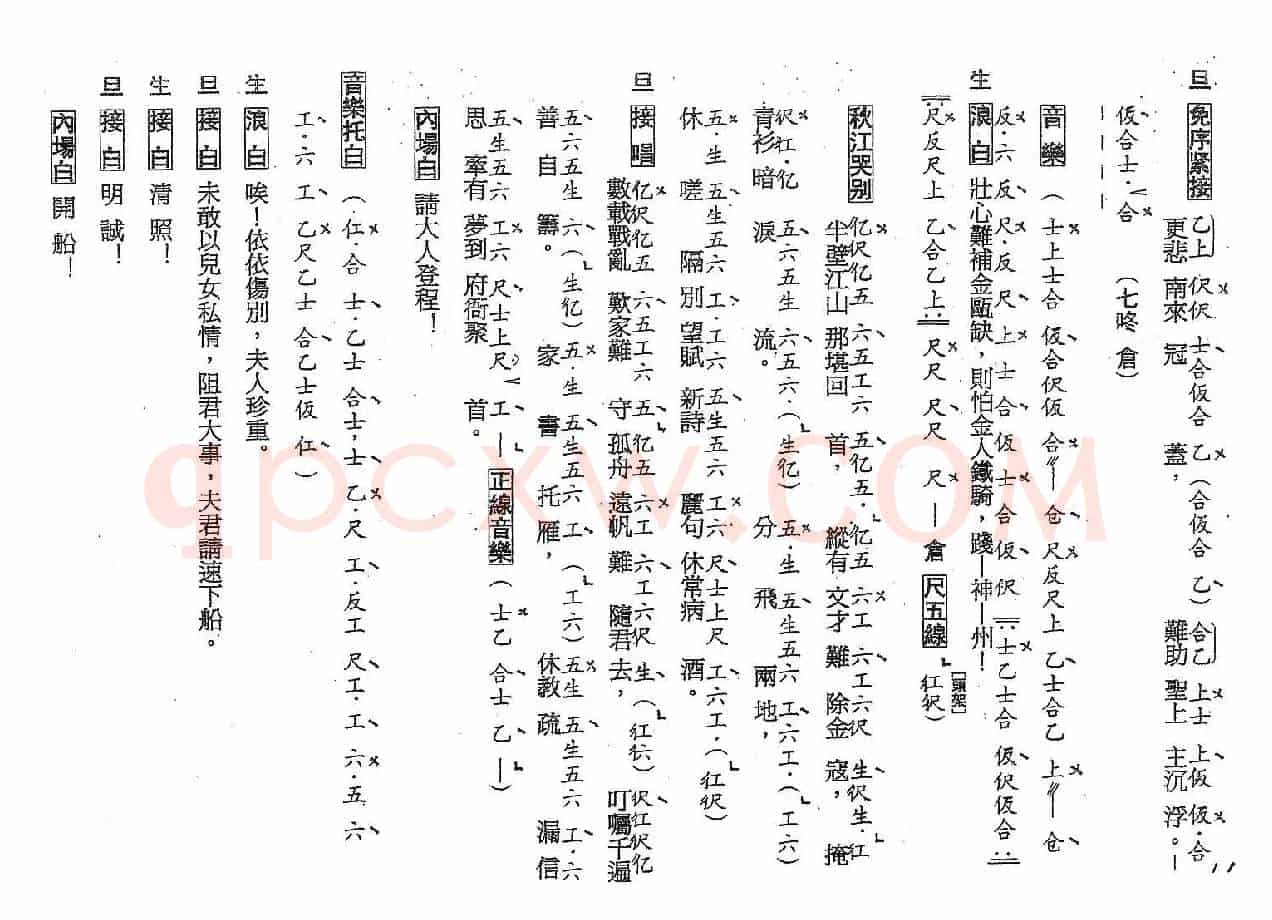 旦 免序緊接 乙上 伬伬 士合仮合 乙(合仮合 乙)合乙 上士 上仮 仮·合
更悲 南來 冠 蓋，難助 聖上 主沉 浮。—
仮合士·合 (七咚 倉)
音樂 (士上士合 仮合伬仮 合〃— 仓 尺反尺上 乙士合乙 上〃— 仓
反·六 反 尺·反 尺 上·士 合 仮 士 合 仮 伬 士乙士合 仮伬仮合
生 浪白 壯心難補金甌缺，則怕金人鐵騎，踐—神—州！
尺反尺上 乙合乙上 尺尺 尺尺 尺 — 倉 尺五線 [頭架] 仜伬)
秋江哭别 亿伬亿五 六五工六 五亿五·亿五 六工 六工六伬 生伬生·仜
半壁江山 那堪回 首，縱有 文才 難 除金 寇，掩
伬仜·亿 五六五生 六五六·(生亿) 五·生 五生五六 工六工·(工六)
青衫 暗 淚 流。 分 飛 兩 地，
五·生 五生五六 工·工六 五生五六 工六 尺士上尺 工六工·(仜伬)
休 嗟 隔 別 望賦 新詩 麗句 休常病 酒。
旦 接唱 亿伬亿五 六五工六 五亿五 六工 六工六伬 生(仜伬) 伬仜伬亿
數載戰亂 歎家難 守 孤舟 遠帆 難 隨君 去，叮囑千遍
五六五生 六(生亿)五·生 五生五六 工(工六) 五生 五生五六 工·六
善 自 籌。 家 書 托 雁，休教 疏 漏信
五生五六 工六 尺士上尺 工 — 正線音樂 (士乙 合士 乙 —)
思 牽有 夢到 府衙聚 首。
內場白 請大人登程！
音樂托白 (仁·合 士·乙士 合士，士 乙·尺 工·反工 尺工·工 六·五 六
工·六 工 乙尺乙士 合乙士仮 仁)
生 浪白 唉！依依傷別，夫人珍重。
旦 接白 未敢以兒女私情，阻君大事，夫君請速下船。
生 接白 清照！
旦 接白 明誠！
內場白 開船！
qpcxw.com